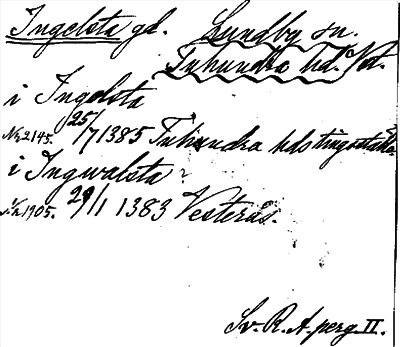 Ingelsta gd. Lundby sn.
Tuhundra hd. Vst.
i Ingolsta
Nr 2145. 25/7 1385 Tuhundra hds tingsställe
i Ingwalsta?
Nr 1905. 29/1 1383 Vesterås.
Sv. R. A. perg. II.